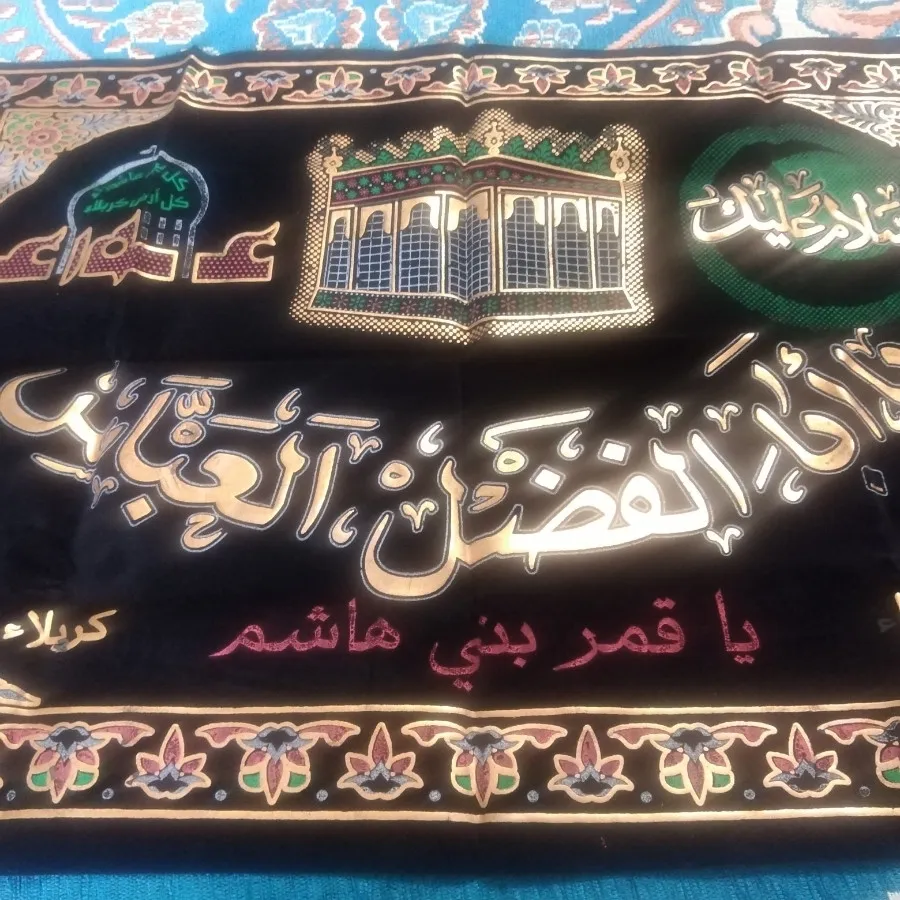 السلام عليك
كل يوم عاشوراء
كل أرض كربلاء
يا أبا الفضل العباس
يا قمر بني هاشم
كربلاء